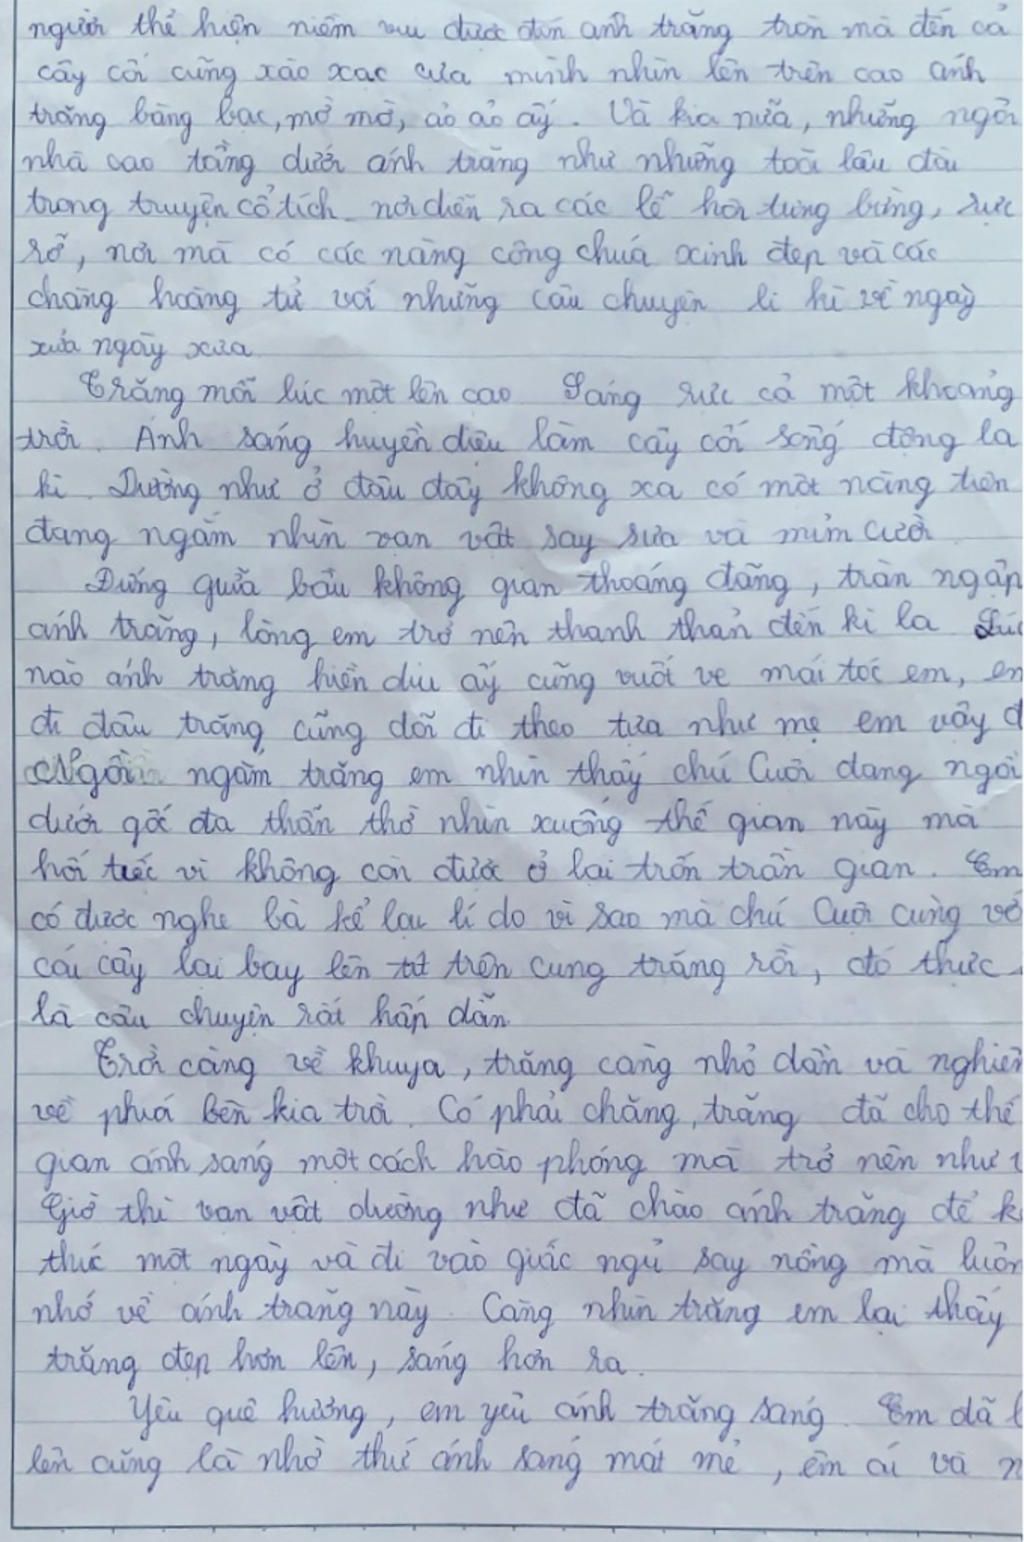 người thể hiện niềm vui được đón ánh trăng tròn mà đến cả
cây cối cũng xào xạc cựa mình nhìn lên trên cao ánh
trăng bàng bạc, mờ mờ, ảo ảo ấy. Và kia nữa, những ngôi
nhà cao tầng dưới ánh trăng như những toà lâu đài
trong truyện cổ tích nơi diễn ra các lễ hội tưng bừng, rực
rỡ, nơi mà có các nàng công chúa xinh đẹp và các
chàng hoàng tử với những câu chuyện li kì về ngày
xửa ngày xưa
Trăng mỗi lúc một lên cao Sáng rực cả một khoảng
trời. Ánh sáng huyền diệu làm cây cối sống động lạ
kì. Dường như ở đâu đây không xa có một nàng tiên
đang ngắm nhìn vạn vật say sưa và mỉm cười
Đứng giữa bầu không gian thoáng đãng, tràn ngập
ánh trăng, lòng em trở nên thanh thản đến kì lạ Lúc
nào ánh trăng hiền dịu ấy cũng vuốt ve mái tóc em, em
đi đâu trăng cũng dõi đi theo tựa như mẹ em vậy đ
Ngồi ngắm trăng em nhìn thấy chú Cuội đang ngồi
dưới gốc đa thẩn thơ nhìn xuống thế gian này mà
hối tiếc vì không còn được ở lại trốn trần gian. Em
có được nghe bà kể lại lí do vì sao mà chú Cuội cùng vớ
cái cây lại bay lên tít trên cung trăng rồi, đó thực
là câu chuyện rất hấp dẫn
Trời càng về khuya, trăng càng nhỏ dần và nghiên
về phía bên kia trời. Có phải chăng, trăng đã cho thế
gian ánh sáng một cách hào phóng mà trở nên như
Giờ thì vạn vật dường như đã chào ánh trăng để k
thúc một ngày và đi vào giấc ngủ say nồng mà luôn
nhớ về ánh trăng này. Càng nhìn trăng em lại thấy
trăng đẹp hơn lên, sáng hơn ra.
Yêu quê hương, em yêu ánh trăng sáng. Em đã l
lên cũng là nhờ thứ ánh sáng mát mẻ, êm ái và n